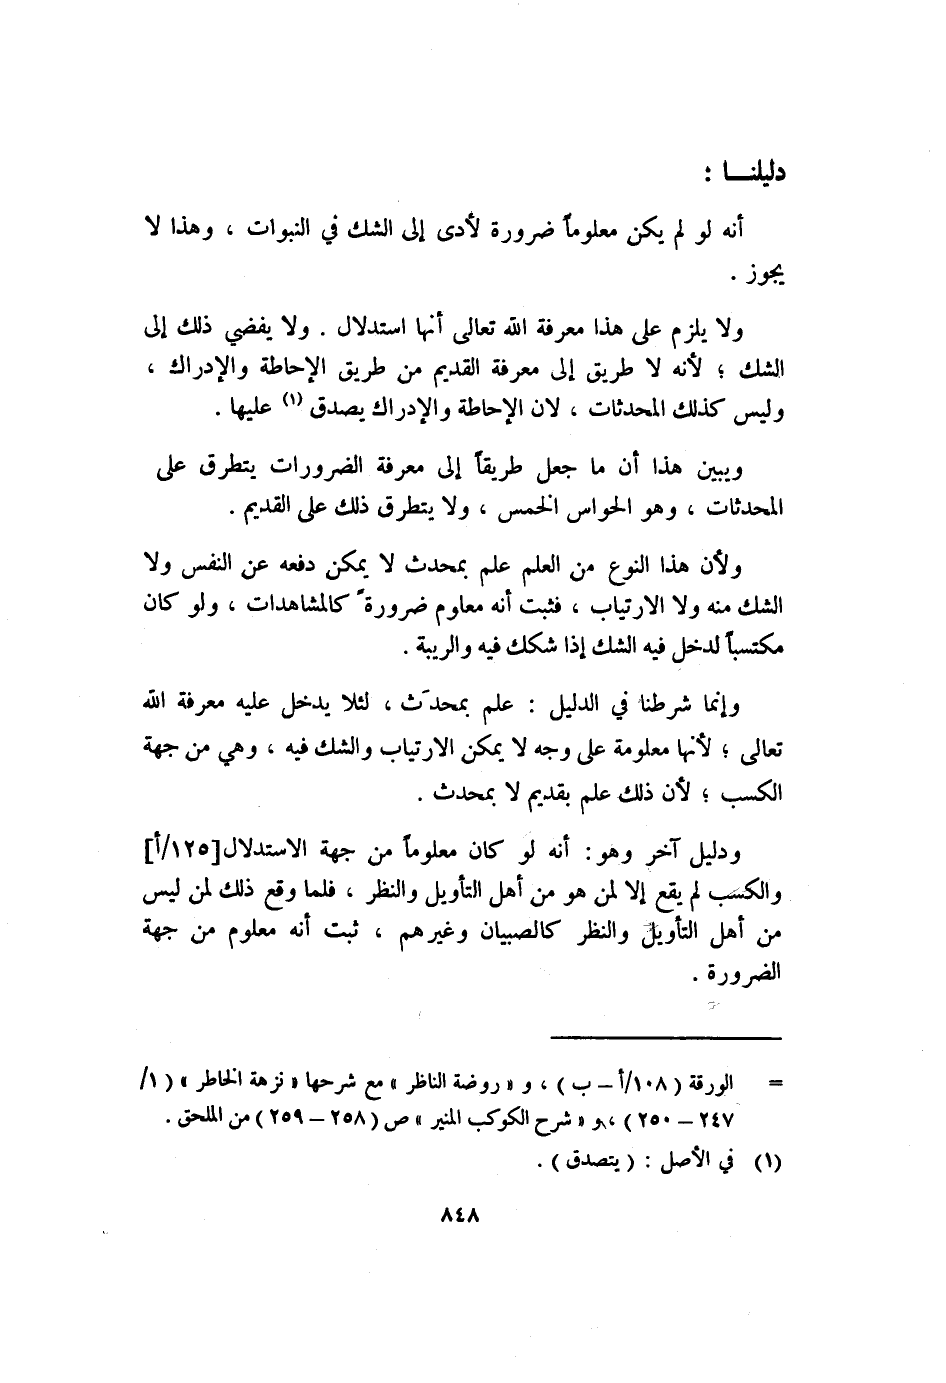 دليلنـــا :
أنه لو لم يكن معلوماً ضرورة لأدى إلى الشك في النبوات ، وهذا لا
يجوز .
ولا يلزم على هذا معرفة الله تعالى أنها استدلال . ولا يفضي ذلك إلى
الشك ؛ لأنه لا طريق إلى معرفة القديم من طريق الإحاطة والإدراك ،
وليس كذلك المحدثات ، لان الإحاطة والإدراك يصدق (١) عليها .
ويبين هذا أن ما جعل طريقاً إلى معرفة الضرورات يتطرق على
المحدثات ، وهو الحواس الخمس ، ولا يتطرق ذلك على القديم .
ولأن هذا النوع من العلم علم بمحدث لا يمكن دفعه عن النفس ولا
الشك منه ولا الارتياب ، فثبت أنه معلوم ضرورة ً كالمشاهدات ، ولو كان
مكتسباً لدخل فيه الشك إذا شكك فيه والريبة .
وإنما شرطنا في الدليل : علم بمحدَث ، لئلا يدخل عليه معرفة الله
تعالى ؛ لأنها معلومة على وجه لا يمكن الارتياب والشك فيه ، وهي من جهة
الكسب ؛ لأن ذلك علم بقديم لا بمحدث .
ودليل آخر وهو : أنه لو كان معلوماً من جهة الاستدلال [١٢٥/أ]
والكسب لم يقع إلا لمن هو من أهل التأويل والنظر ، فلما وقع ذلك لمن ليس
من أهل التأويل والنظر كالصبيان وغيرهم ، ثبت أنه معلوم من جهة
الضرورة .
= الورقة ( ١٠٨/أ – ب ) ، و « روضة الناظر » مع شرحها « نزهة الخاطر » ( ١/
٢٤٧ – ٢٥٠ ) ، و « شرح الكوكب المنير » ص ( ٢٥٨ – ٢٥٩ ) من الملحق .
(١) في الأصل : ( يتصدق ) .
٨٤٨